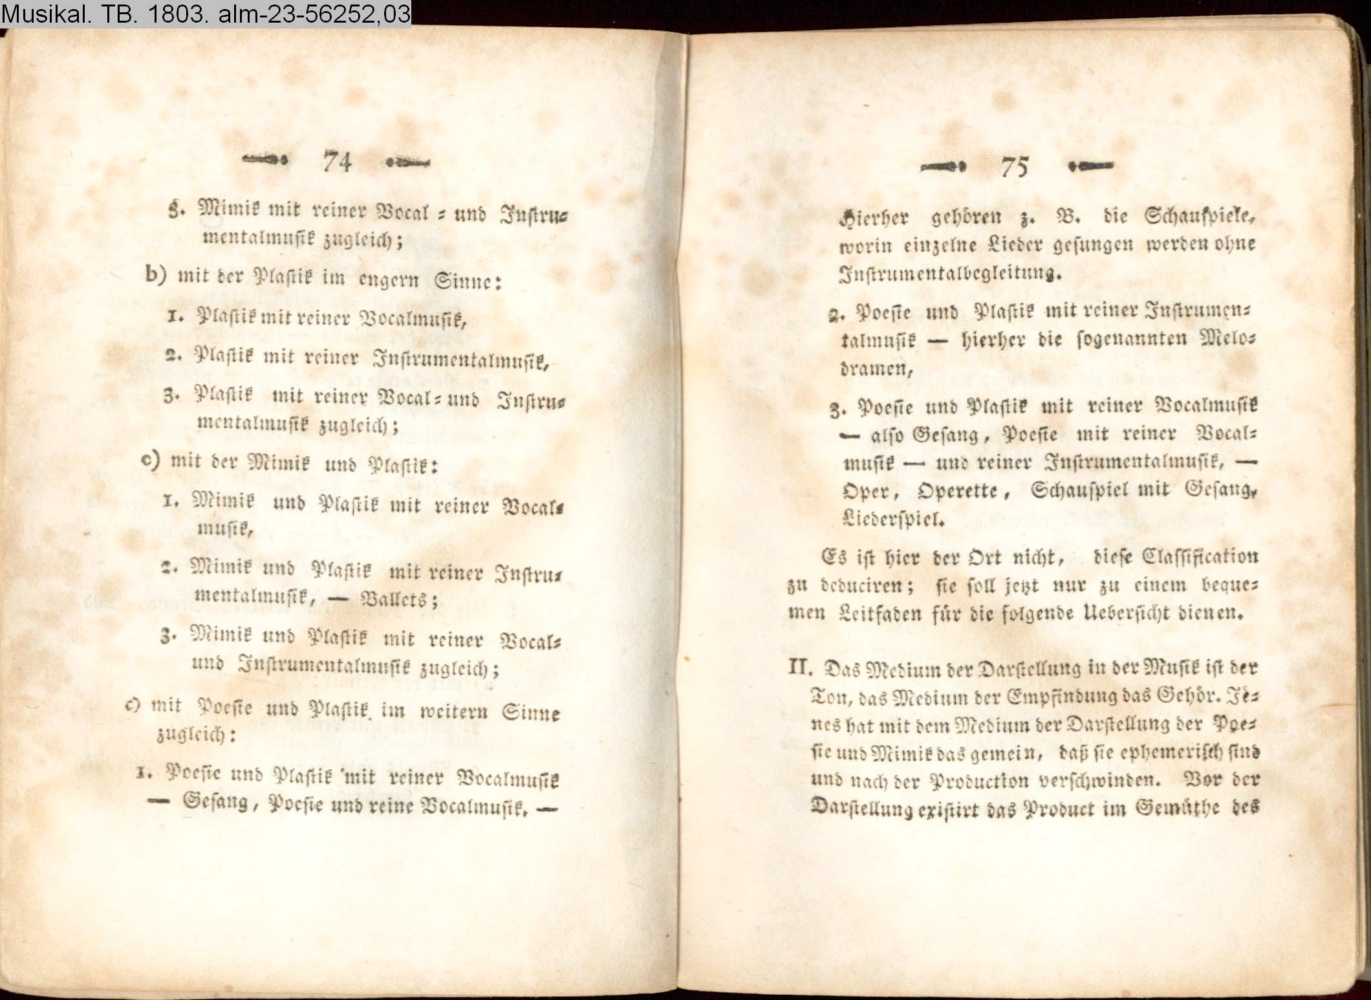 Musikal. TB. 1803. alm-23-56252,03
74
3. Mimik mit reiner Vocal- und Instru-
mentalmusik zugleich;
b) mit der Plastik im engern Sinne:
1. Plastik mit reiner Vocalmusik,
2. Plastik mit reiner Instrumentalmusik,
3. Plastik mit reiner Vocal- und Instru-
mentalmusik zugleich;
c) mit der Mimik und Plastik:
1. Mimik und Plastik mit reiner Vocal-
musik,
2. Mimik und Plastik mit reiner Instru-
mentalmusik, — Ballets;
3. Mimik und Plastik mit reiner Vocal-
und Instrumentalmusik zugleich;
c) mit Poesie und Plastik im weitern Sinne
zugleich:
1. Poesie und Plastik mit reiner Vocalmusik
— Gesang, Poesie und reine Vocalmusik. —
75
Hierher gehören z. B. die Schauspiele,
worin einzelne Lieder gesungen werden ohne
Instrumentalbegleitung.
2. Poesie und Plastik mit reiner Instrumen-
talmusik — hierher die sogenannten Melo-
dramen,
3. Poesie und Plastik mit reiner Vocalmusik
— also Gesang, Poesie mit reiner Vocal-
musik — und reiner Instrumentalmusik, —
Oper, Operette, Schauspiel mit Gesang,
Liederspiel.
Es ist hier der Ort nicht, diese Classification
zu deduciren; sie soll jetzt nur zu einem beque-
men Leitfaden für die folgende Uebersicht dienen.
II. Das Medium der Darstellung in der Musik ist der
Ton, das Medium der Empfindung das Gehör. Je-
nes hat mit dem Medium der Darstellung der Poe-
sie und Mimik das gemein, daß sie ephemerisch sind
und nach der Production verschwinden. Vor der
Darstellung existirt das Product im Gemüthe des